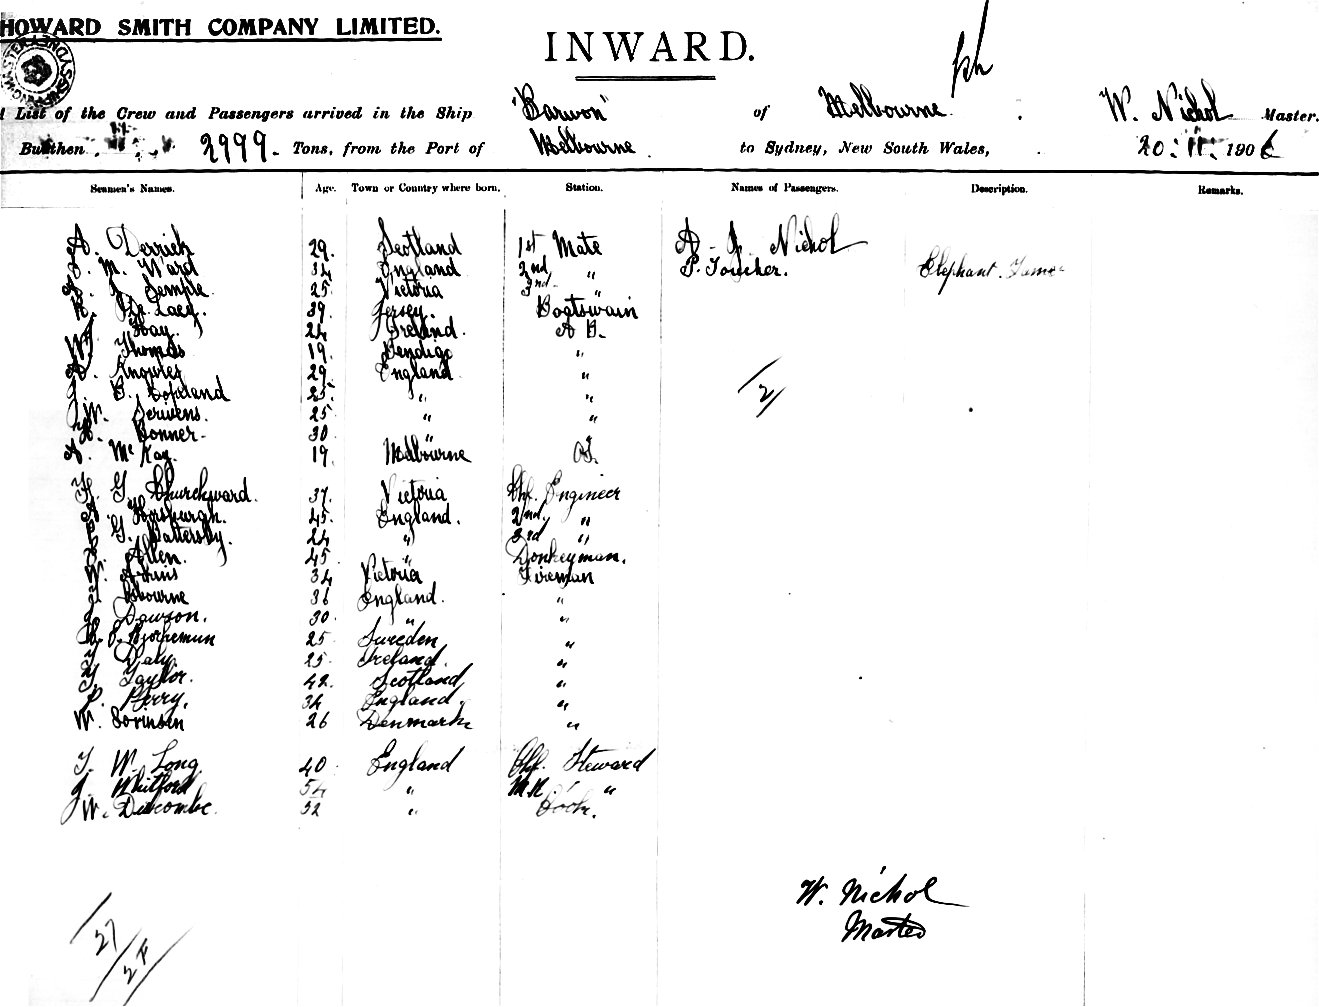 HOWARD SMITH COMPANY LIMITED.
INWARD.
List of the Crew and Passengers arrived in the Ship "Barwon" of Melbourne. W. Nichol Master.
Burthen 2999. Tons, from the Port of Melbourne. to Sydney, New South Wales, 20.11.1906
Seamen's Names. Age. Town or Country where born. Station. Names of Passengers. Description. Remarks.
A. Derrick 29. Scotland 1st Mate Nichol
M. Ward 34 England 2nd " P. Toucher. Elephant Tamer
Semple 25 Victoria 3rd "
De Lacy. 39 Jersey. Boatswain
Hay. 24 Ireland. A B.
Thomas 19. Bendigo "
Knowles 29. England "
B. Copeland 25. " "
W. Scrivens. 25 " "
Bonner. 30 "
McKay. 19. Melbourne OS.
G Churchward. 37. Victoria Chf. Engineer
Horsburgh. 45. England. 2nd. "
G. Battersby. 24 " 3rd "
Allen. 45. " Donkeyman.
W. Akins 34 Victoria Fireman
Osbourne 36 England. "
Dawson. 30. " "
25 Sweden "
Daly. 25. Ireland. "
Taylor. 42. Scotland "
P. Perry. 34 England. "
W. Sorinsen 26 Denmark "
T. W. Long 40 England Chf. Steward
J. Whitford 54 " "
W. Duscombe. 52 " Cook.
2/
27
W. Nichol
Master